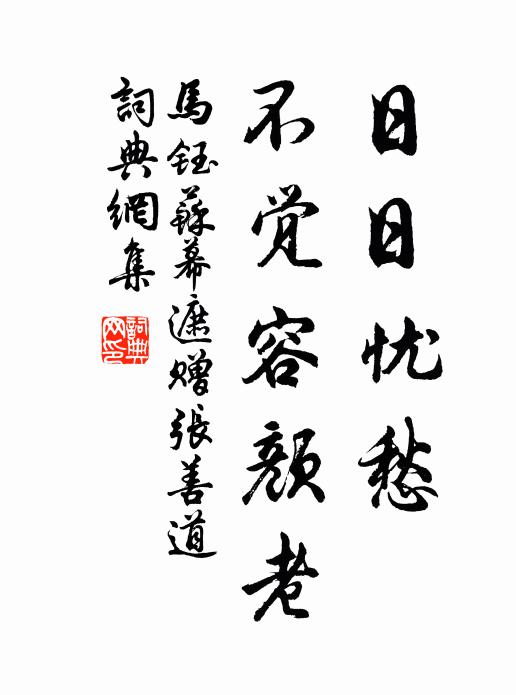 日日忧愁
不觉容颜老
馬鈺蘇幕遮贈張善道
詞典網集
詞典網印